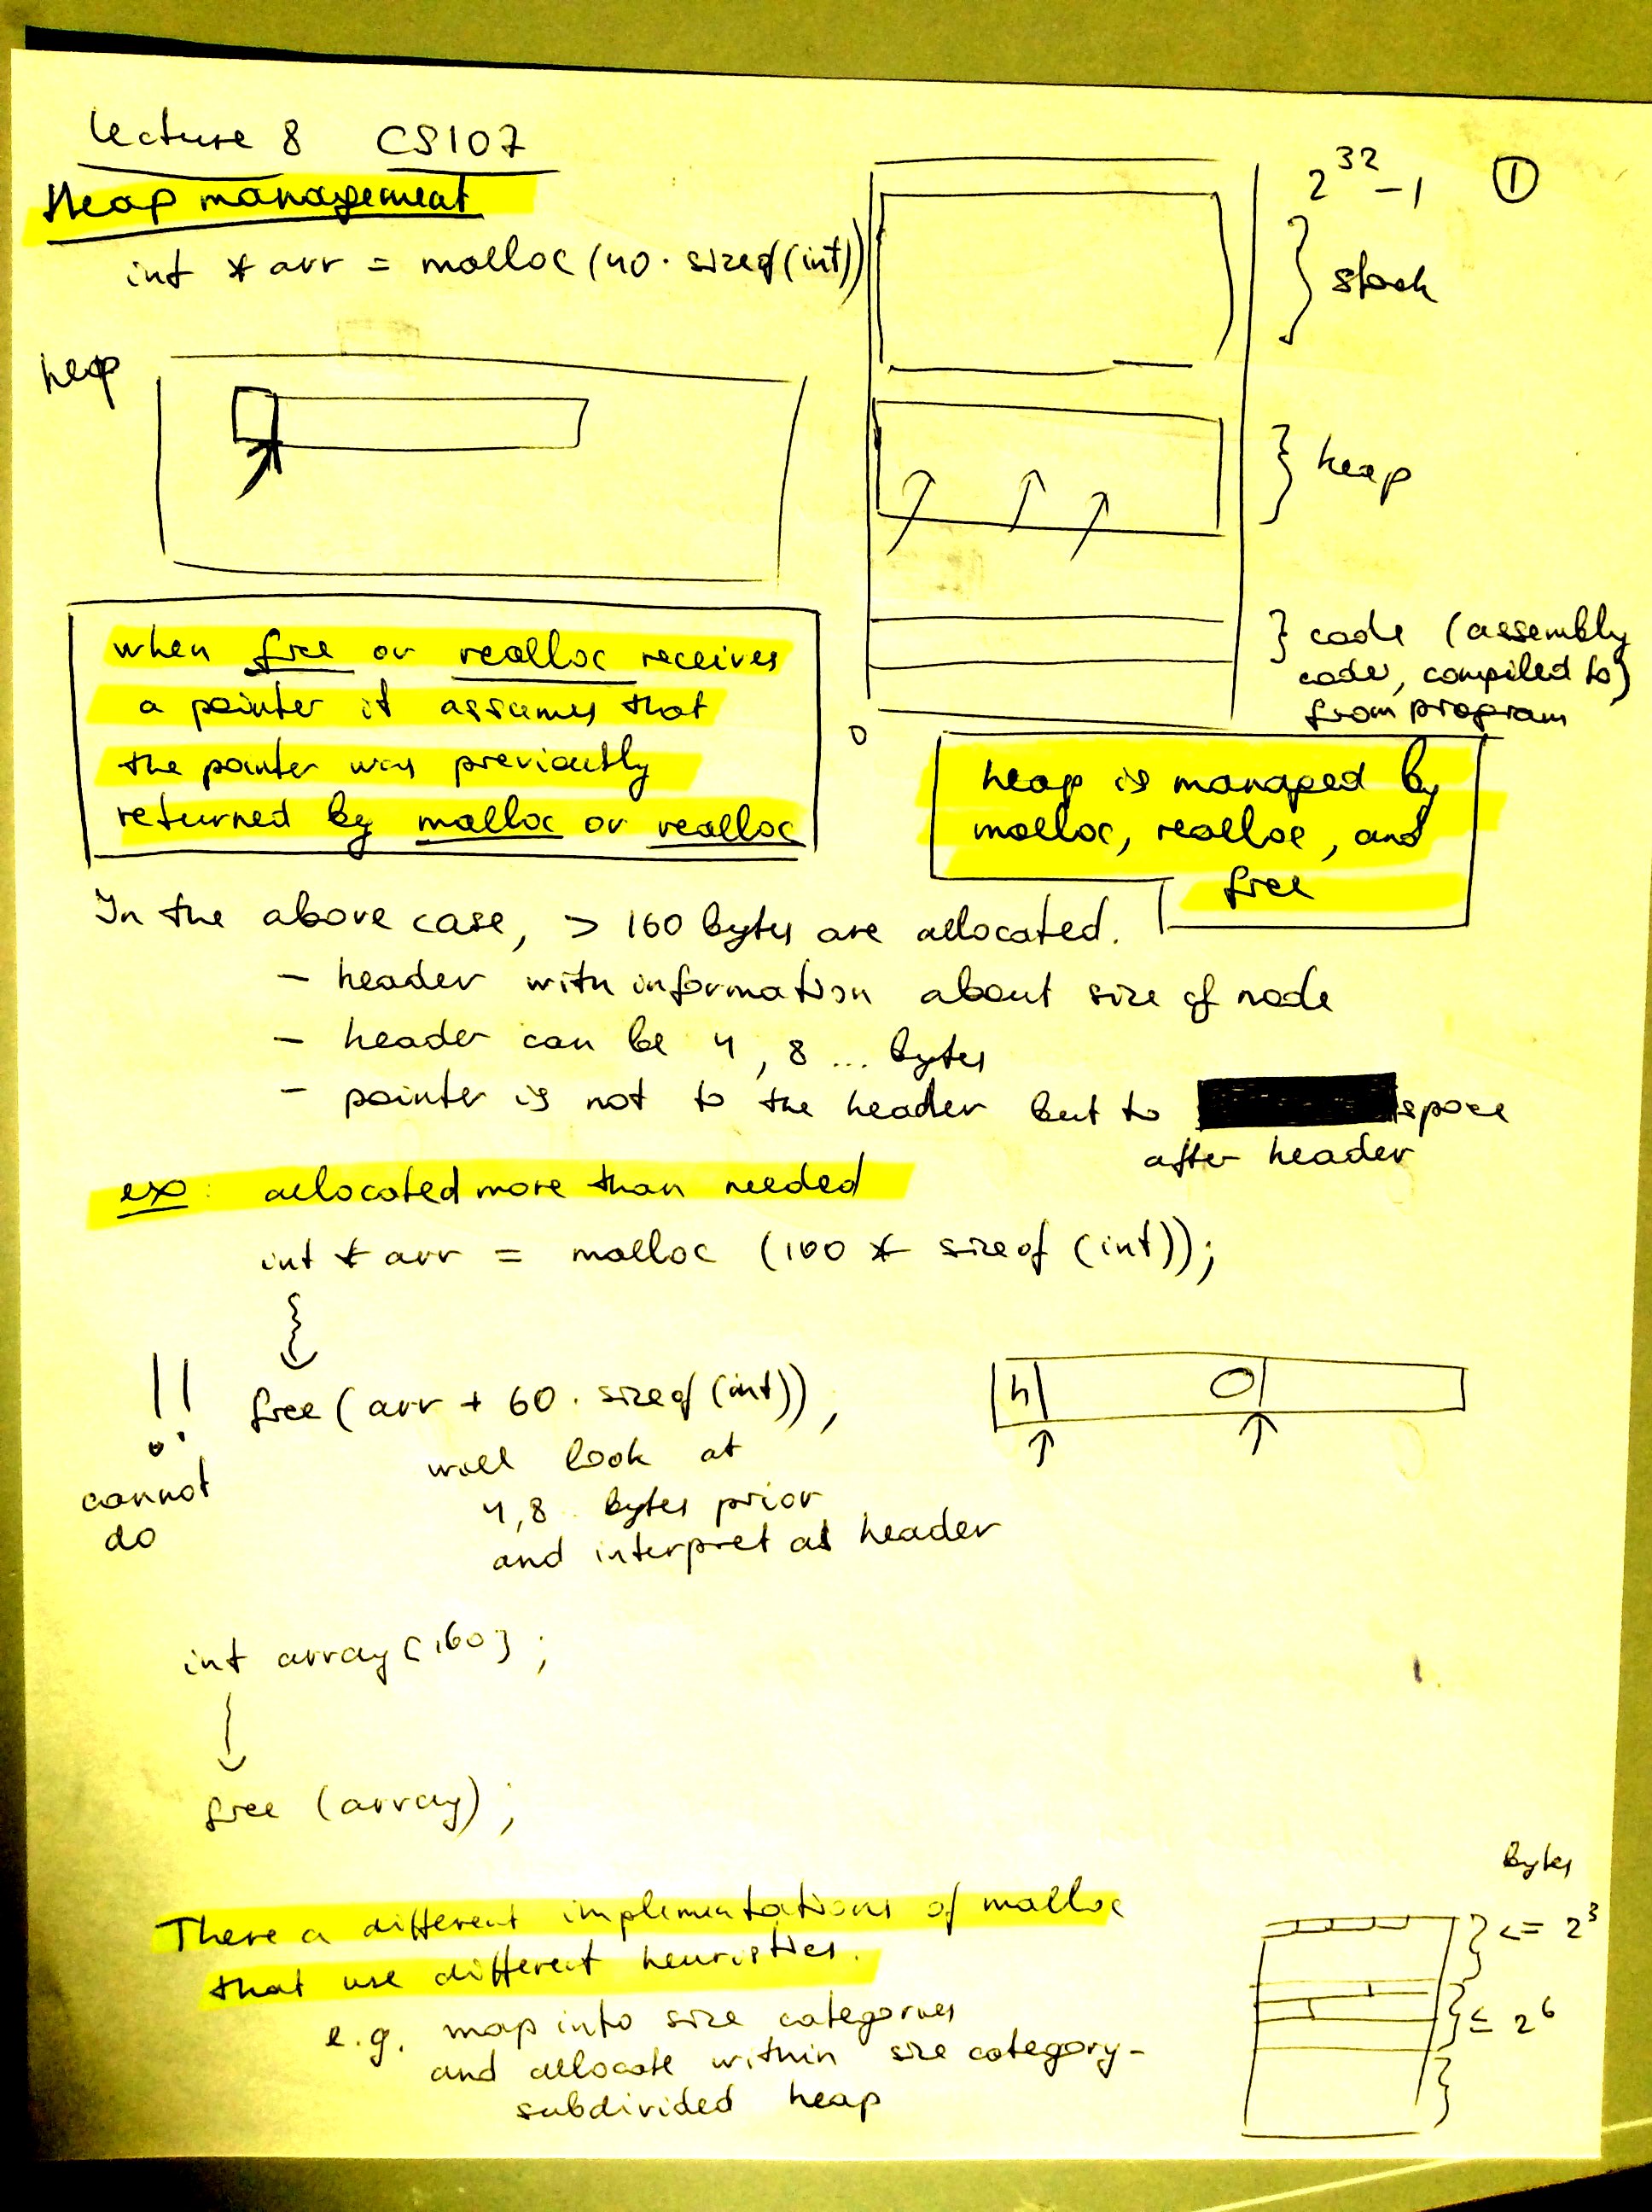 Lecture 8 CS107
Heap management
int * arr = malloc (40 · sizeof (int))
2^32 - 1
①
} stack
heap
} heap
} code (assembly
code, compiled to)
from program
0
when free or realloc receives
a pointer it assumes that
the pointer was previously
returned by malloc or realloc
heap is managed by
malloc, realloc, and
free
In the above case, > 160 bytes are allocated.
- header with information about size of node
- header can be 4, 8 ... bytes
- pointer is not to the header but to space
after header
ex: allocated more than needed
int * arr = malloc (100 * sizeof (int));
!! free (arr + 60 · sizeof (int)),
h
cannot
do
will look at
4,8 bytes prior
and interpret as header
int array [160];
free (array);
There a different implementations of malloc
that use different heuristics.
e.g. map into size categories
and allocate within size category -
subdivided heap
Bytes
} <= 2^3
} ≤ 2^6